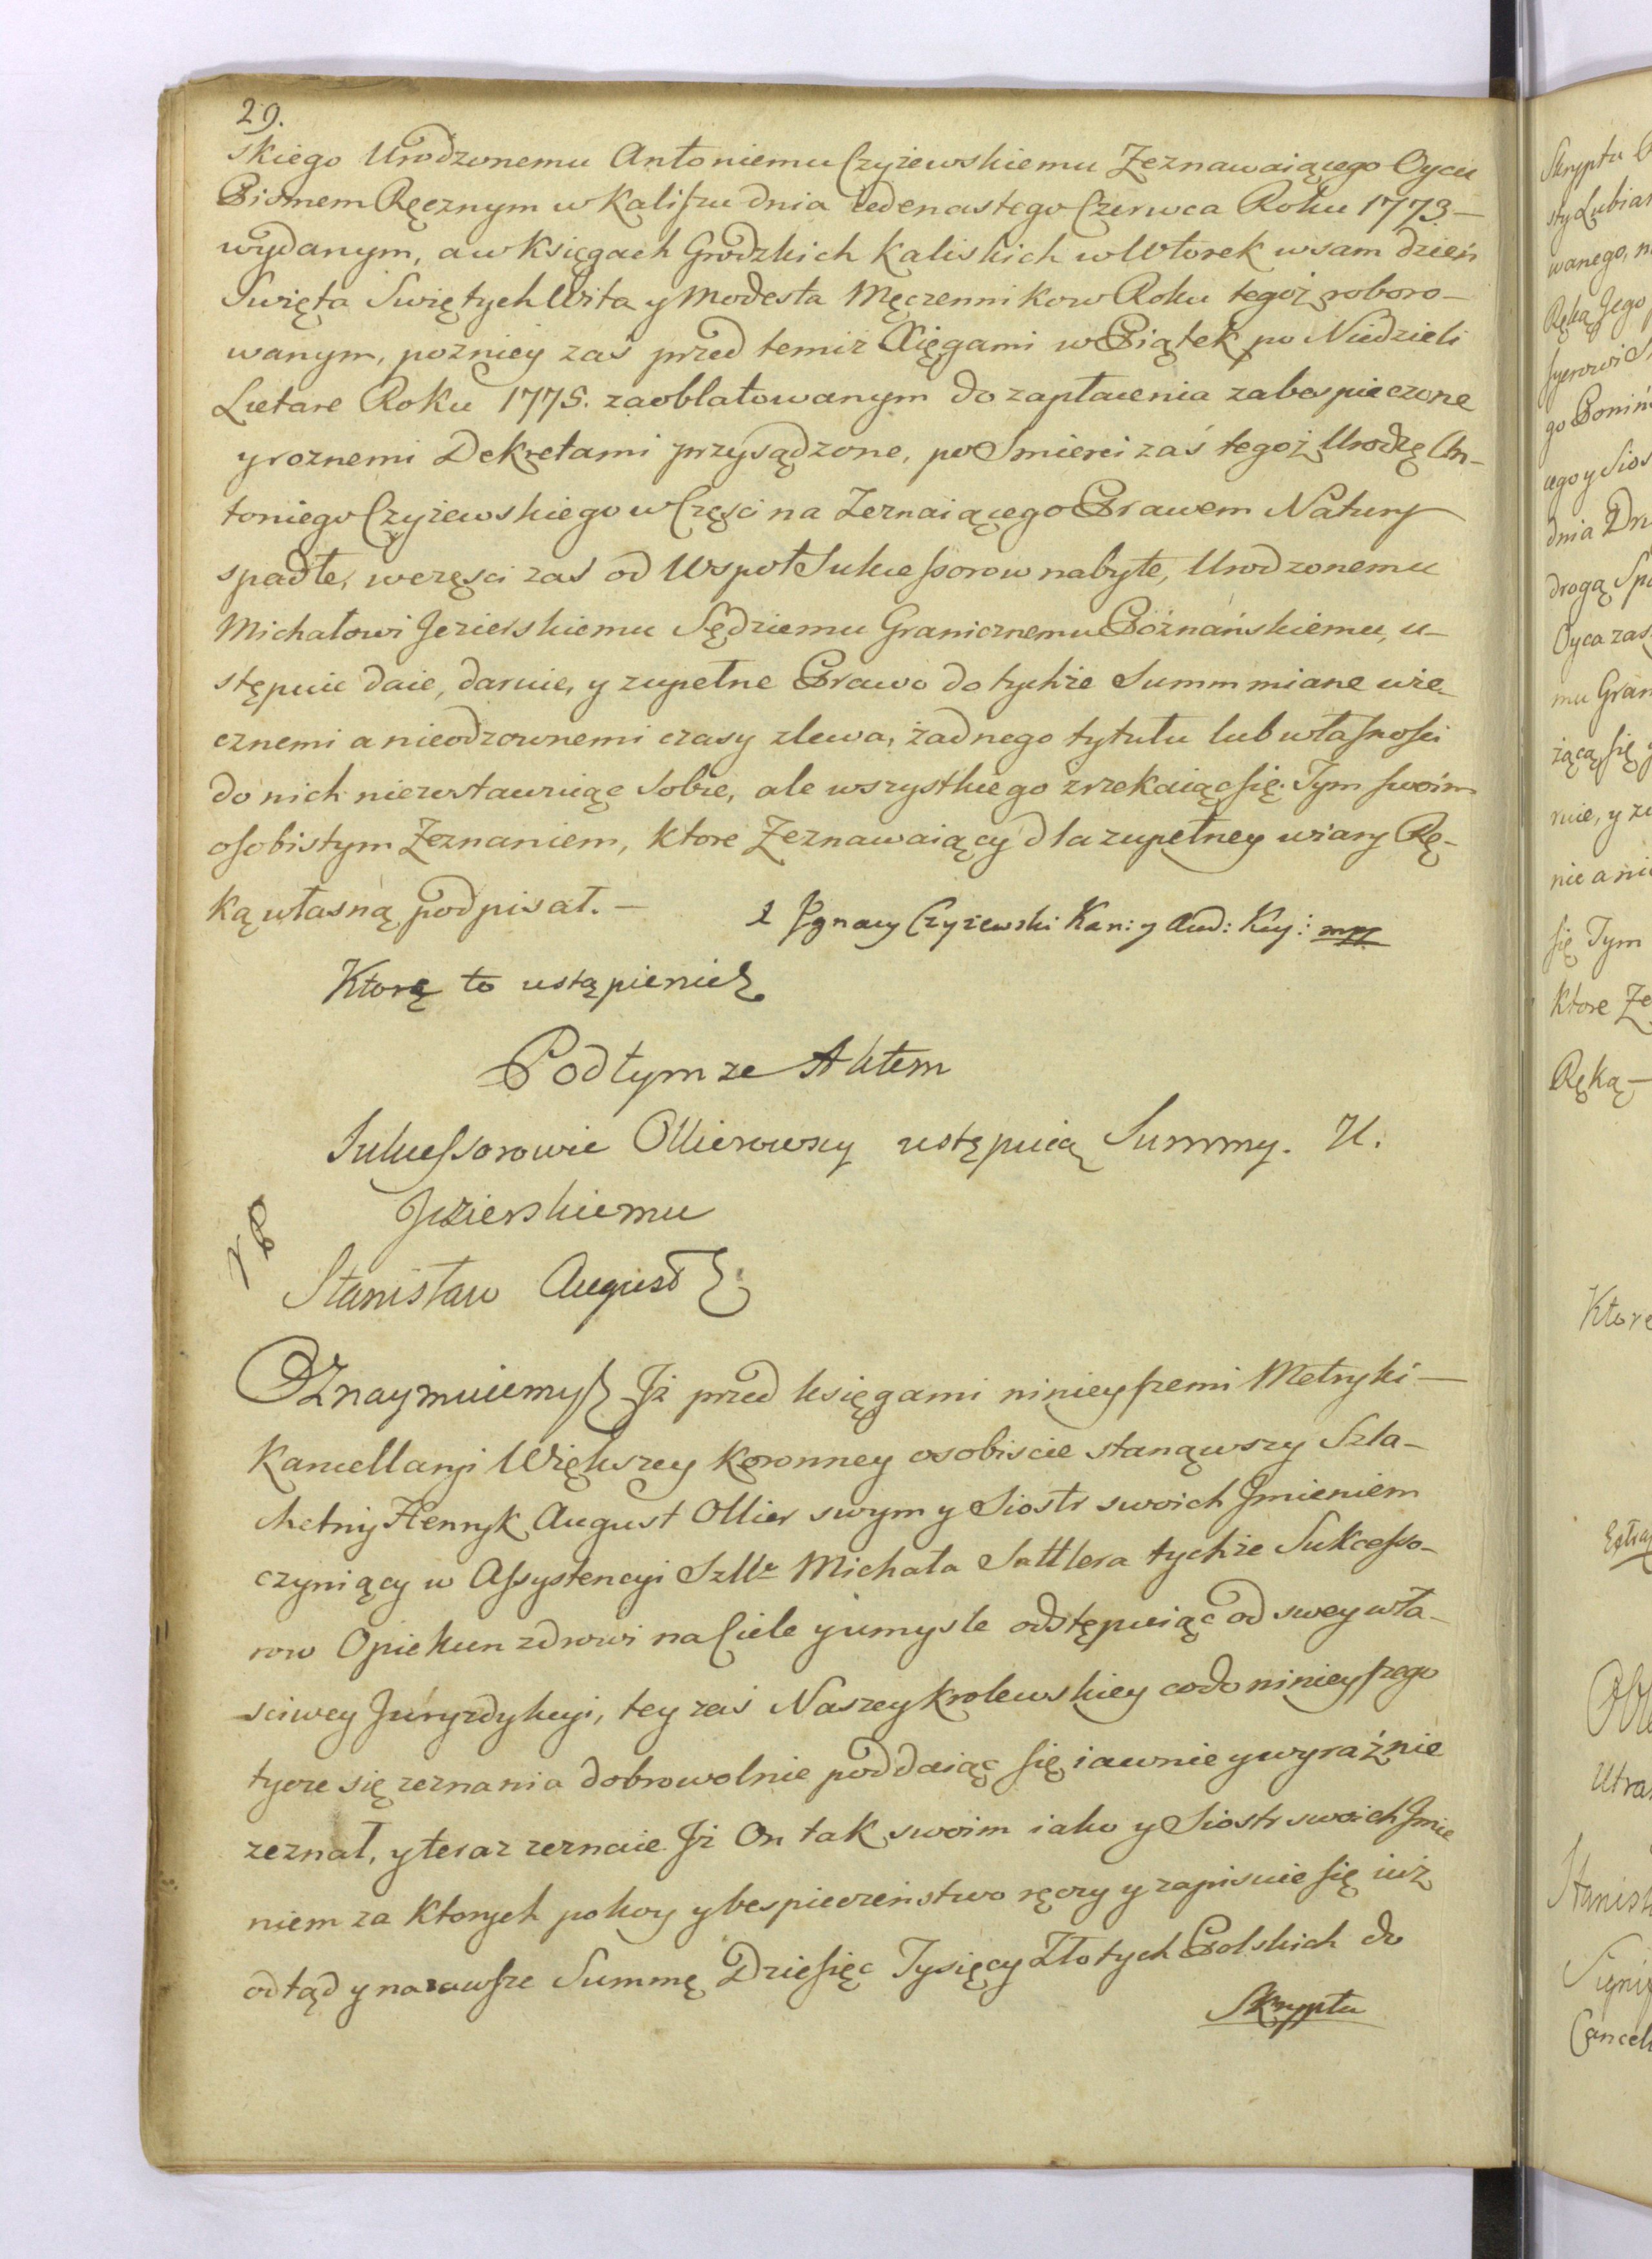 29.
skiego Urodzonemu Antoniemu Czyżewskiemu Zeznawaiącego Oycu
Pismem Ręcznym w Kaliszu dnia iedenastego Czerwca Roku 1773 —
wydanym, a w Księgach Grodzkich Kaliskich w Wtorek w sam dzień
Swięta Swiętych Wita y Modesta Męczennikow Roku tegoż roboro-
wanym, pozniey zaś przed temiż Xięgami w Piątek po Niedzieli
Lætare Roku 1775. zaoblatowanym do zapłacenia zabespieczone
y roznemi Dekretami przysądzone, po Smierci zaś tegoż Urodzo An-
toniego Czyżewskiego w Częsci na Zeznaiącego Prawem Natury
spadłe, w częsci zaś od Wspoł Sukcessorow nabyte, Urodzonemu
Michałowi Jezierskiemu Sędziemu Granicznemu Poznańskiemu, u-
stępuie daie, daruie, y zupełne Prawo do tychże Summ miane wie-
cznemi a nieodzownemi czasy zlewa, żadnego tytułu lub własności
do nich niezostawuiąc sobie, ale wszystkiego zrzekaiąc się. Tym swoim
osobistym Zeznaniem, ktore Zeznawaiący dla zupełney wiary Rę-
ką własną podpisał. —
X Jgnacy Czyżewski Kan: y Aud: Kuj: mpp
Ktorę to ustąpienie
Podtymze Aktem
Sukcessorowie Ollierowscy ustępuią Summy. U.
Jezierskiemu
Stanisław August
Oznaymuiemy Jż przed księgami ninieyszemi Metryki —
Kancellaryi Większey Koronney osobiscie stanąwszy Szla-
chetny Henryk August Ollier swym y Siostr swoich Jmieniem
czyniący w Assystencyi Szlle Michała Sattlera tychże Sukcesso-
row Opiekun zdrowi na Ciele y umysle odstępuiąc od swey wła-
sciwey Jurydykcyi, tey zaś Naszey Krolewskiey co do ninieyszego
tycze się zeznania dobrowolnie poddaiąc się iawnie y wyraźnie
zeznał, y teraz zeznaie Jż On tak swoim iako y Siostr swoich Jmie
niem za ktorych pokoy y bespieczeństwo ręczy y zapisuie się iuż
odtąd y nazawsze Summę Dziesięc Tysięcy Złotych Polskich do
Skryptu